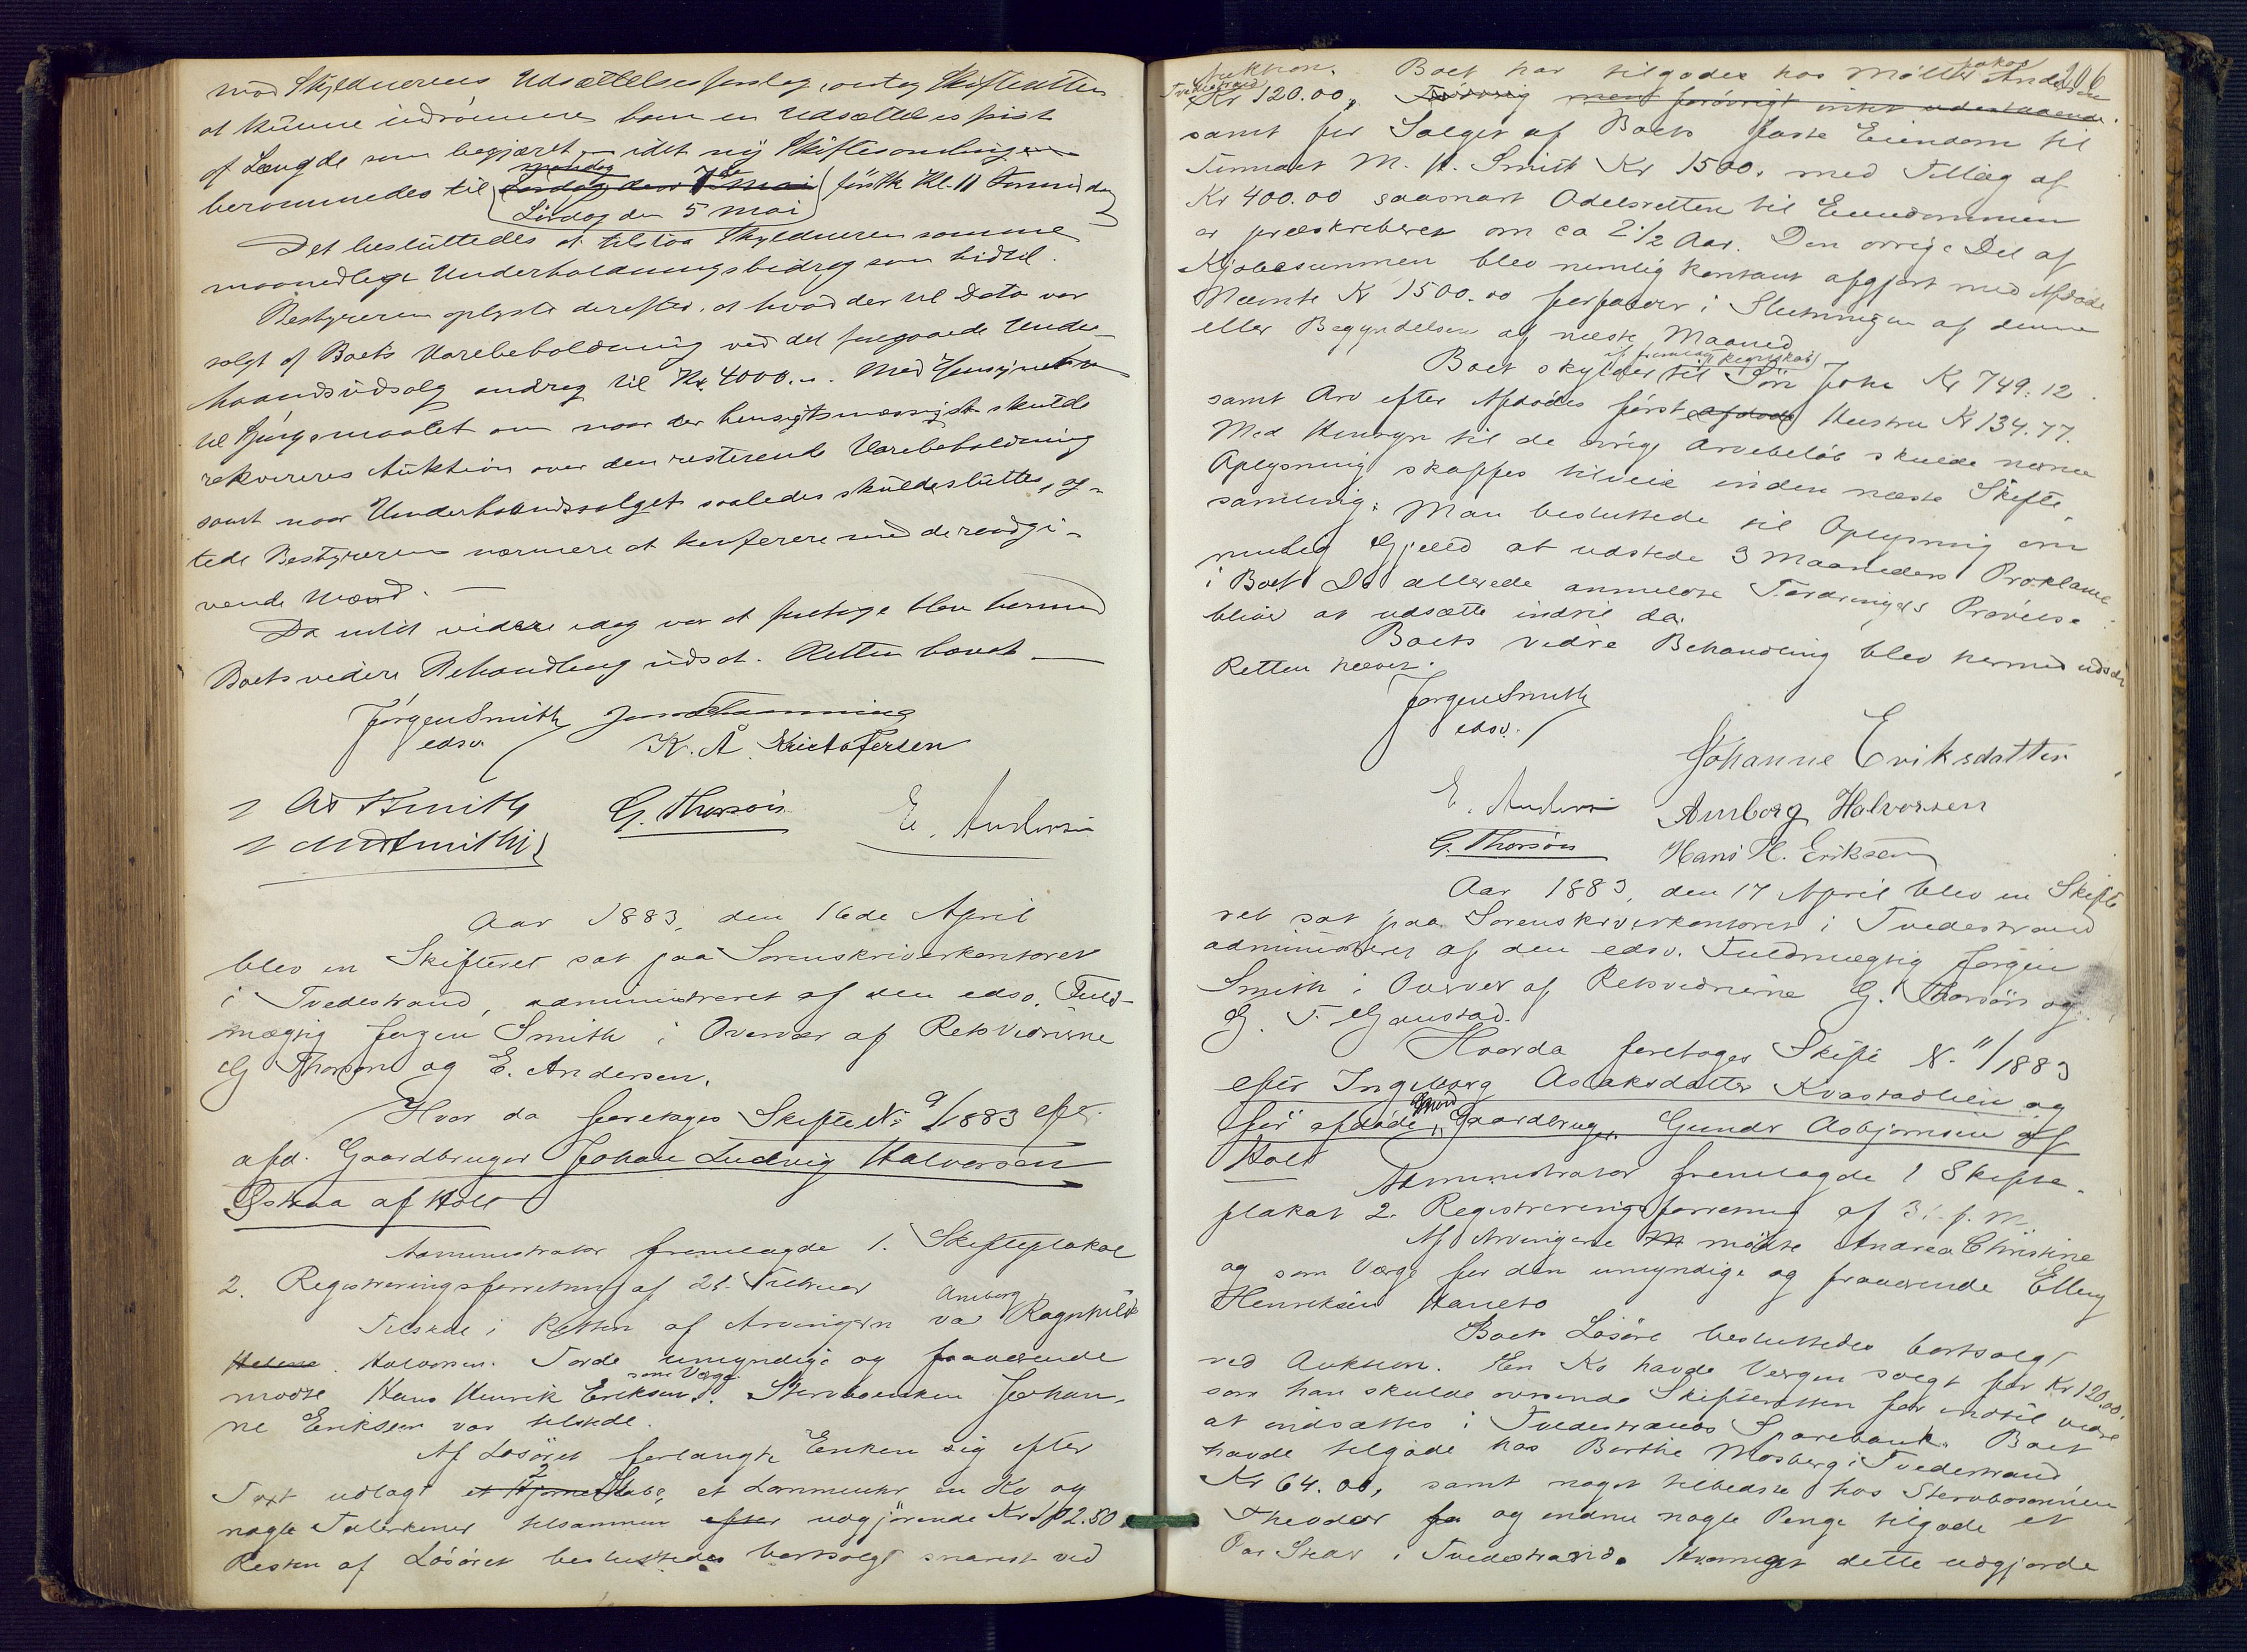 mod Skyldnerens Udsættelsesforslag, antog Skifteretten
at kunne indrømmes ham en Udsættelsesfrist
af Længde som begjæret, – idet ny Skiftesamling
berammedes til Lørdag den 5 Mai førstk Kl. 11 Formiddag
Det besluttedes at tilstaa Skyldneren samme
maanedlige Underholdningsbidrag som hidtil.
Bestyreren oplyste derefter, at hvad der til Dato var
solgt af Boets Varebeholdning ved det foregaaede Under-
haandsudsalg androg til Kr. 4000.–. Med Hensyn
til Spørgsmaalet om naar der hensigtsmæssigst skulde
rekvireres Auktion over den resterende Varebeholdning
samt naar Underhaandssalget saaledes skulde sluttes, ag-
tede Bestyreren nærmere at konferere med de raadgi-
vende Mænd. –
Da intet videre idag var at foretage blev hermed
Boets videre Behandling udsat. Retten hævet –
Jørgen Smith
edsv. K. A. Kristofersen
G. Thorsøn E. Andersen
Aar 1883, den 16de April
blev en Skifteret sat paa Sorenskriverkontoret
i Tvedestrand, administreret af den edsv. Fuld-
mægtig Jørgen Smith i Overvær af Retsvidnerne
G Thorsøn og E. Andersen.
Hvor da foretoges Skifte N: 9/1883 efter
afd. Gaardbruger Johan Ludvig Halvorsen
Østeraa af Holt
Administrator fremlagde 1. Skifteplakat
2. Registreringsforretning af 21. Februar
Tilstede i Retten af Arvingerne var Amborg Ragnhild
Helene Halvorsen. For de umyndige og fraværende
mødte Hans Henrik Eriksen som Værge. Stervboenken Johan-
ne Eriksen var tilstede.
Af Løsøret forlangte Enken sig efter
Taxt udlagt et Hjørneskabe, et Lommeuhr en Ko og
nogle Tallerkener tilsammen efter udgjørende Kr 102.50.
Resten af Løsøret besluttedes bortsolgt snarest ved
206
Auktion. Boet har tilgode hos Møller Jakob Andersen
Tvedestrand Kr 120.00, men forøvrigt intet udestaaende.
samt for Salget af Boets faste Eiendom til
M. H. Smith Kr 1500. med Tillæg af
Kr 400.00 saasnart Odelsretten til Eiendommen
er præskriberet om ca 2 1/2 Aar. Den øvrige Del af
Kjøbesummen blev nemlig kontant afgjort med Afdøde
Nævnte Kr 1500.00 forfalder i Slutningen af denne
eller Begyndelsen af næste Maaned
Boet skylder til Søn John Kr 749.12.
samt Arv efter Afdødes først afdøde Hustru Kr 134.77.
Med Hensyn til de øvrige Arvebeløb skulde nærmere
Oplysning skaffes tilveie inden næste Skifte
samling. Man besluttede til Oplysning om
mulig Gjæld at udstede 3 Maaneders Proklama
i Boet. De allerede anmeldte Fordringers Prøvelse
bliver at udsætte indtil da.
Boets vidre Behandling blev hermed udsat
Retten hævet.
Jørgen Smith
edsv.
Johanne Eriksdatter
E. Andersen Amborg Halvorsen
G. Thorsøn Hans H. Eriksen
Aar 1883, den 17 April blev en Skifte
ret sat paa Sorenskriverkontoret i Tvedestrand
administreret af den edsv. Fuldmægtig Jørgen
Smith i Overvær af Retsvidnerne G. Thorsøn og
G. T. Gaustad.
Hvorda foretoges Skifte N. 11/1883
efter Ingeborg Aslaksdatter Kvastadlien og
før afdøde Mand Gaardbruger Gundr Asbjørnsen af
Holt
Administrator fremlagde 1 Skifte-
plakat 2. Registreringsforretning af 31. f. M.
Af Arvingerne mødte Andrea Christine
og som Værge for den umyndige og fraværende Ellen
Henriksen
Boets Løsøre besluttedes bortsolgt
ved Auktion. En Ko havde Vergen solgt for Kr 120.00.
som han skulde oversende Skifteretten for indtil videre
at indsættes i Tvedestrands Sparebank. Boet
havde tilgode hos Berthe Mosberg i Tvedestrand
Kr 64.00, samt noget hos Stervbosønnen
Theodor og endnu nogle Penge tilgode et
Par Steder i Tvedestrand. Hvormeget dette udgjorde